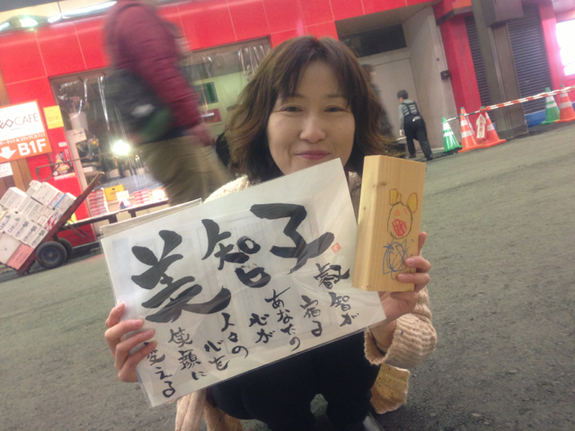 美智子
叡智が
宿る
あなたの
心が
人々の
心を
笑顔に
変える
CAFE
B1F